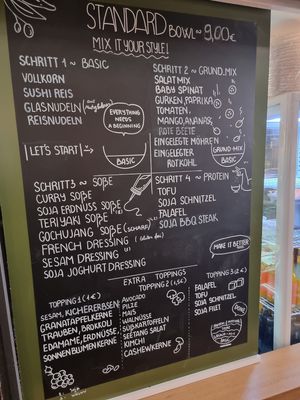 STANDARD BOWL ~ 9,00€
MIX IT YOUR STYLE!
SCHRITT 1 ~ BASIC
VOLLKORN
SUSHI REIS
GLASNUDELN
REISNUDELN
EVERYTHING
NEEDS
A BEGINNING
LET'S START
BASIC
SCHRITT 2 ~ GRUND.MIX
SALATMIX
BABY SPINAT
GURKEN, PAPRIKA
TOMATEN,
MANGO, ANANAS,
ROTE BEETE
EINGELEGTE MÖHREN
EINGELEGTER
ROTKOHL
GRUND-MIX
BASIC
SCHRITT 3 ~ SOßE
CURRY SOßE
SOJA ERDNUSS SOßE
TERIYAKI SOßE
GOCHUJANG SOßE (SCHARF)
FRENCH DRESSING
SESAM DRESSING
SOJA JOGHURT DRESSING
SCHRITT 4 ~ PROTEIN
TOFU
SOJA SCHNITZEL
FALAFEL
SOJA BBQ STEAK
MAKE IT BETTER
EXTRA TOPPINGS
TOPPING 1 (1€)
SESAM, KICHERERBSEN,
GRANATAPFELKERNE
TRAUBEN, BROKKOLI
EDAMAME, ERDNÜSSE,
SONNENBLUMENKERNE
TOPPING 2 (1,5€)
AVOCADO
PILZE
MAIS
WALNÜSSE
SÜßKARTOFFELN
SEETANG SALAT
KIMCHI
CASHEWKERNE
TOPPING 3 (2€)
FALAFEL
TOFU
SOJA SCHNITZEL
SOJA FILET